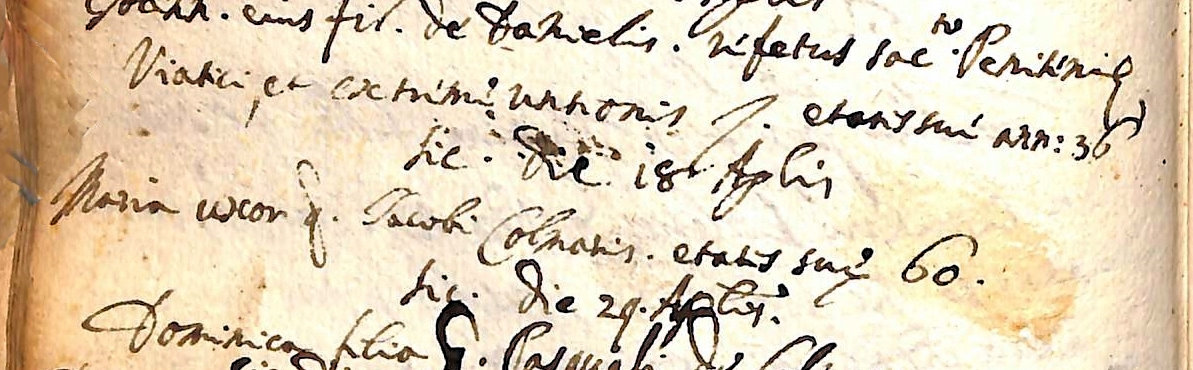 Joann. eius fil. de Danielis. refetus sac.to Penitentię
Viatici, et extremę untionis etatis suę ann: 36
sic. Die 18 Aplis
Maria uxor q. Jacobi Colnatis. etatis suę 60.
sic. Die 29. Aplis.
Dominica filia q. Pasquali